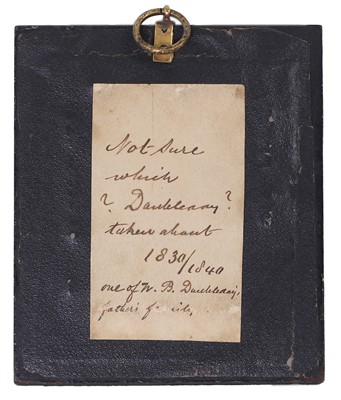 Not Sure
which
? Doubleday ?
taken about
1830/1840
one of W. B. Doubleday,
father's family,